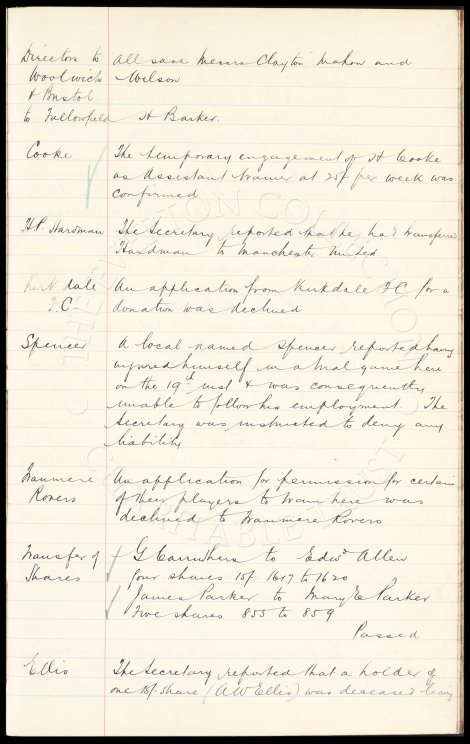 Directors to All save Messrs Clayton Mahon and
Woolwich Wilson
& Bristol
to Fallowfield H Barker.
Cooke The temporary engagement of H Cooke
as Assistant trainer at 25/- per week was
confirmed
H.P. Hardman The Secretary reported that he had transferred
Hardman to Manchester United
Kirkdale An application from Kirkdale F.C. for a
F.C. donation was declined
Spencer A local named Spencer reported having
injured himself in a trial game here
on the 19th inst & was consequently
unable to follow his employment. The
Secretary was instructed to deny any
liability
Tranmere An application for permission for certain
Rovers of their players to train here was
declined to Tranmere Rovers
Transfer of G Carruthers to Edwd Allen
Shares four shares 1617 to 1620
James Parker to Mary E Parker
Five shares 855 to 859
Passed
Ellis The Secretary reported that a holder of
one share (A W Ellis) was deceased